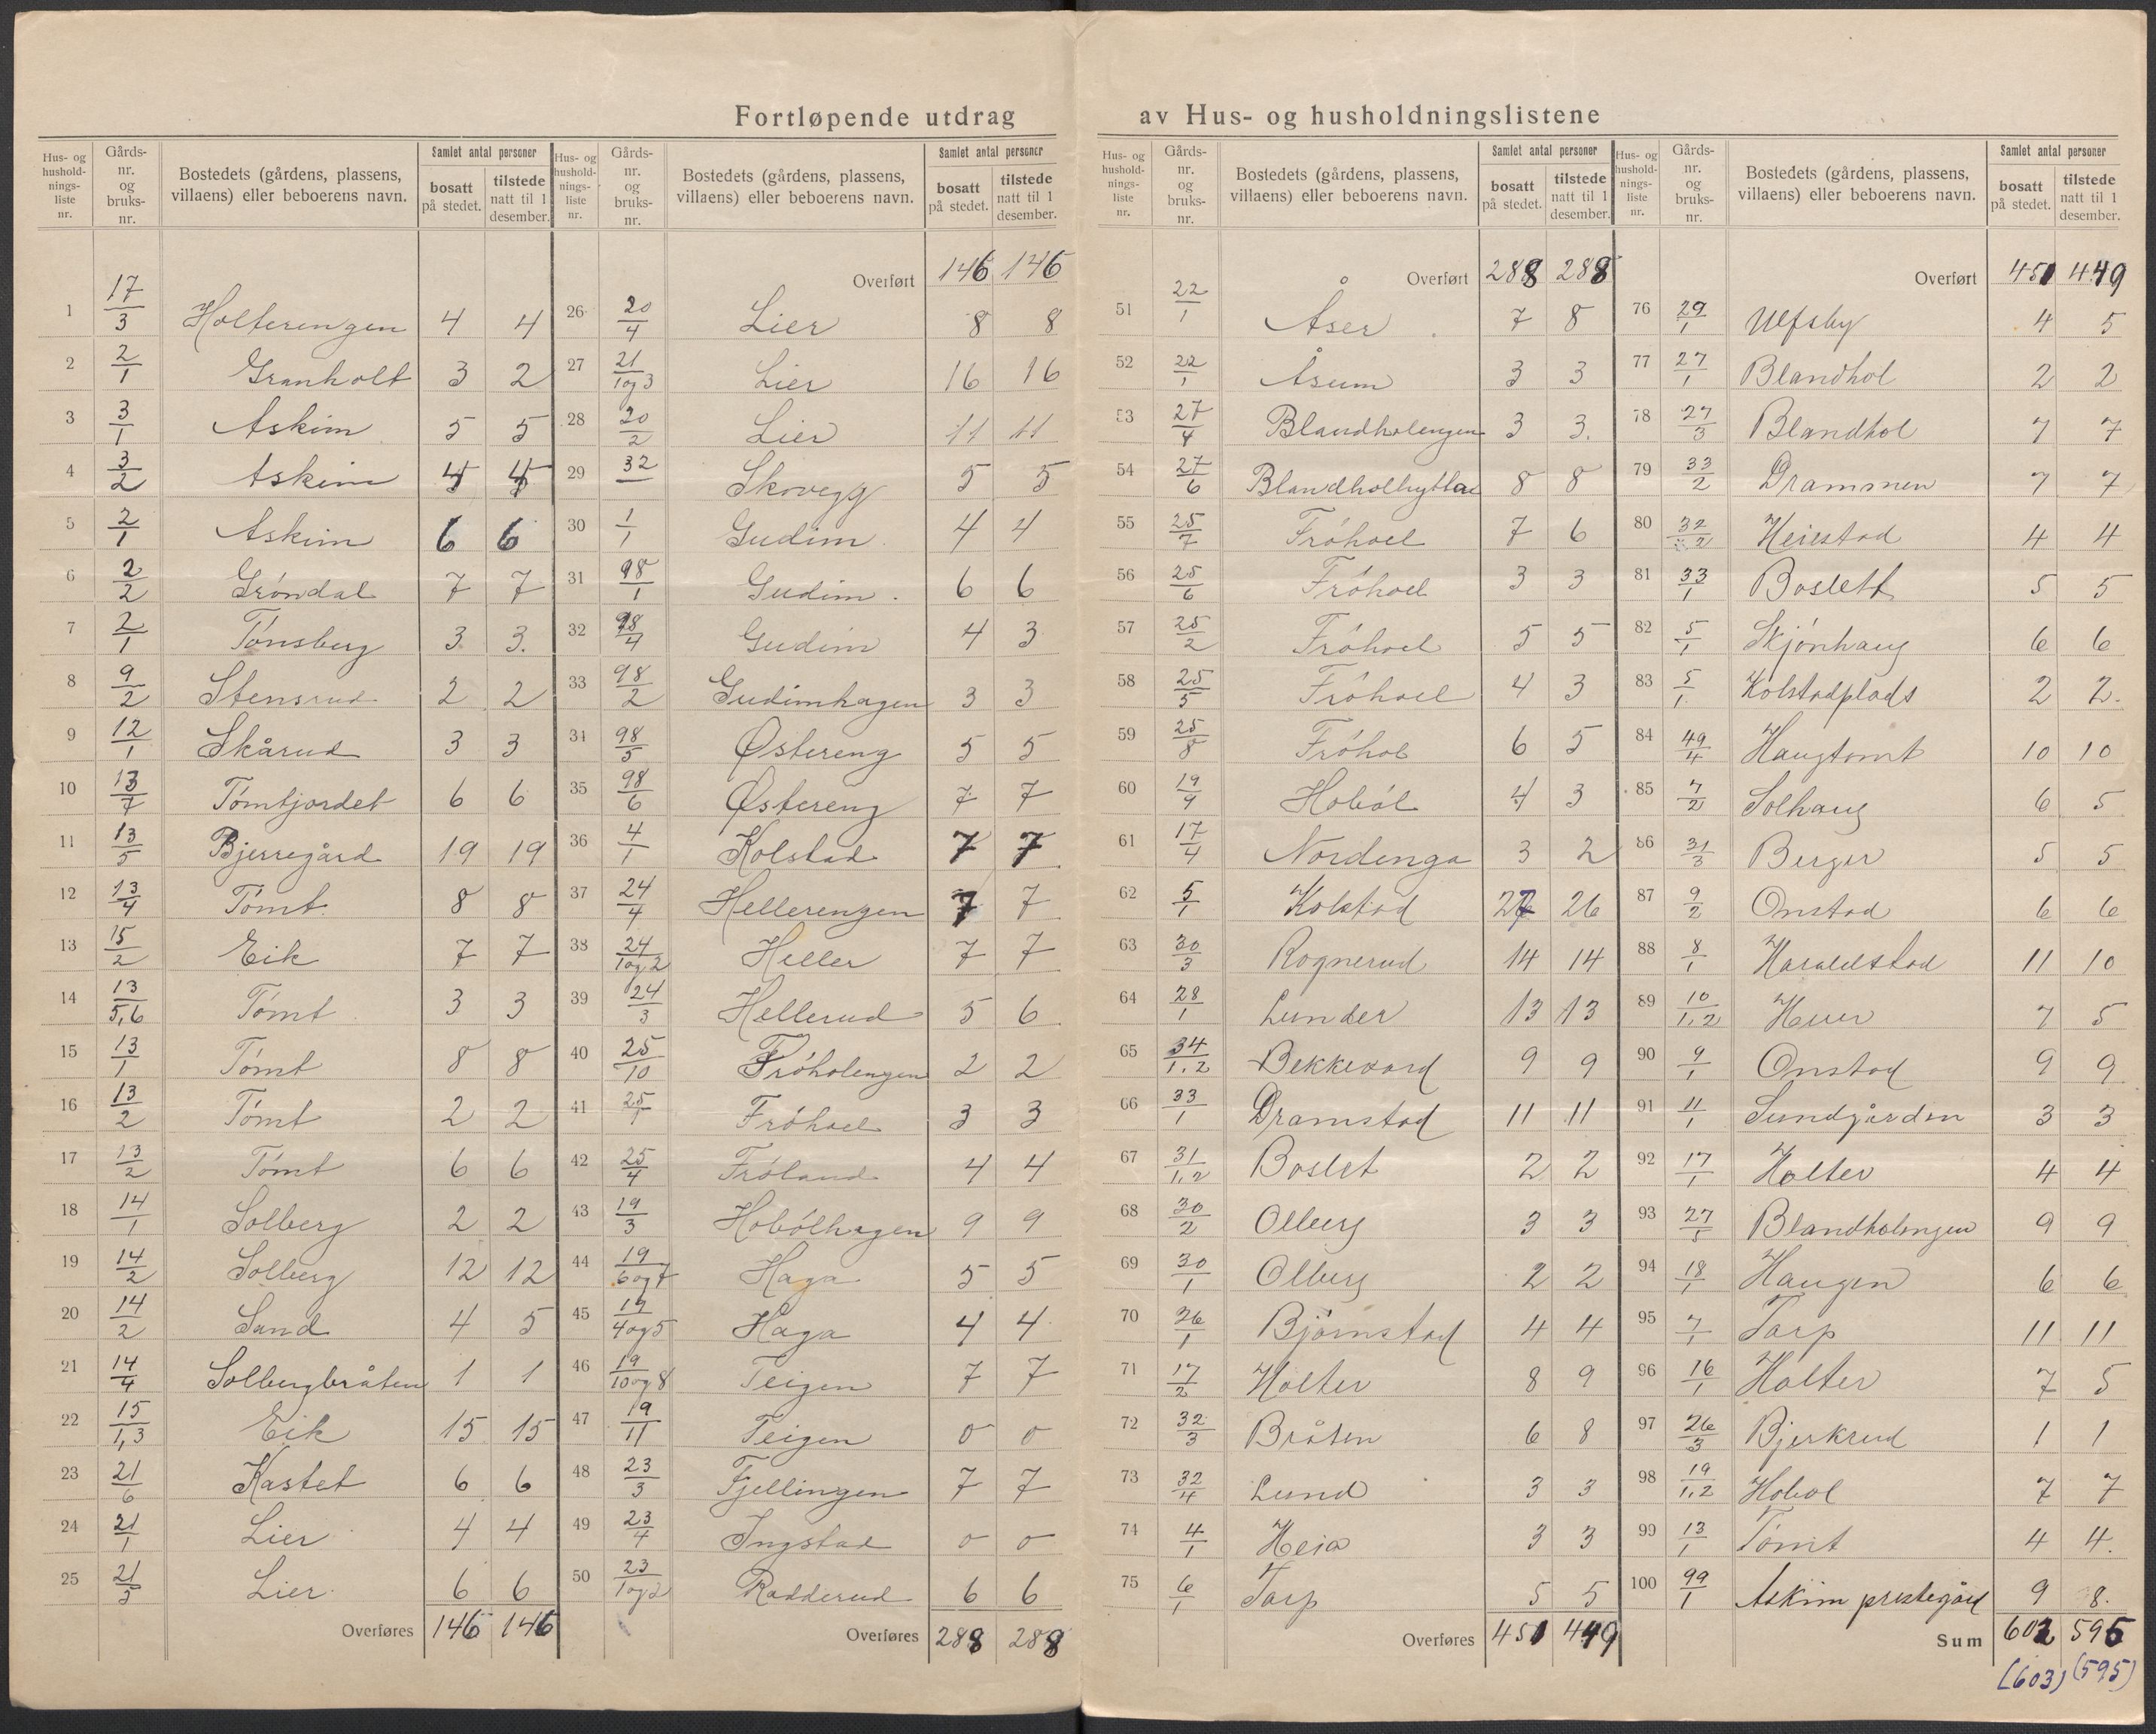 Fortløpende utdrag av Hus- og husholdningslistene
Hus- og hushold-nings-liste nr. Gårds-nr. og bruks-nr. Bostedets (gårdens, plassens, villaens) eller beboerens navn. Samlet antal personer bosatt på stedet. tilstede natt til 1 desember.
1 17/3 Holterengen 4 4
2 2/1 Granholt 3 2
3 3/1 Askim 5 5
4 3/2 Askim 4 4
5 2/1 Askim 6 6
6 2/2 Gröndal 7 7
7 2/1 Tönsberg 3 3.
8 9/2 Stensrud 2 2
9 12/1 Skårud 3 3
10 13/7 Tömtjordet 6 6
11 13/5 Bjerregård 19 19
12 13/4 Tömt 8 8
13 15/2 Eik 7 7
14 13/5,6 Tömt 3 3
15 13/1 Tömt 8 8
16 13/2 Tömt 2 2
17 13/2 Tömt 6 6
18 14/1 Solberg 2 2
19 14/2 Solberg 12 12
20 14/2 Sand 4 5
21 14/4 Solbergbråten 1 1
22 15/1,3 Eik 15 15
23 21/6 Kastet 6 6
24 21/1 Lier 4 4
25 21/3 Lier 6 6
Overføres 146 146
Hus- og hushold-nings-liste nr. Gårds-nr. og bruks-nr. Bostedets (gårdens, plassens, villaens) eller beboerens navn. Samlet antal personer bosatt på stedet. tilstede natt til 1 desember.
Overført 146 146
26 20/4 Lier 8 8
27 21/1og3 Lier 16 16
28 20/2 Lier 11 11
29 32 Skovegg 5 5
30 1/1 Gudim 4 4
31 98/1 Gudim 6 6
32 98/4 Gudim 4 3
33 98/2 Gudimhagen 3 3
34 98/5 Østereng 5 5
35 98/6 Østereng 7 7
36 4/1 Kolstad 7 7
37 24/4 Hellerengen 7 7
38 24/1og2 Heller 7 7
39 24/3 Hellerud 5 6
40 25/10 Fröholengen 2 2
41 25/1 Fröhoel 3 3
42 25/4 Fröland 4 4
43 19/3 Hobölhagen 9 9
44 19/6og7 Haga 5 5
45 19/4og5 Haga 4 4
46 19/10og8 Teigen 7 7
47 19/11 Teigen 0 0
48 23/3 Fjellingen 7 7
49 23/4 Ingstad 0 0
50 23/1og2 Radderud 6 6
Overføres 288 288
Hus- og hushold-nings-liste nr. Gårds-nr. og bruks-nr. Bostedets (gårdens, plassens, villaens) eller beboerens navn. Samlet antal personer bosatt på stedet. tilstede natt til 1 desember.
Overført 288 288
51 22/1 Åser 7 8
52 22/1 Åsum 3 3
53 27/4 Blandholengen 3 3.
54 27/6 Blandholhytta 8 8
55 25/7 Fröhoel 7 6
56 25/6 Fröhoel 3 3
57 25/2 Fröhoel 5 5
58 25/5 Fröhoel 4 3
59 25/8 Fröhol 6 5
60 19/9 Hoböl 4 3
61 17/4 Nordenga 3 2
62 5/1 Kolstad 27 26
63 30/3 Rognerud 14 14
64 28/1 Lunder 13 13
65 34/1,2 Bekkevard 9 9
66 33/1 Dramstad 11 11
67 31/1,2 Boslet 2 2
68 30/2 Olberg 3 3
69 30/1 Olberg 2 2
70 26/1 Björnstad 4 4
71 17/2 Holter 8 9
72 32/3 Bråten 6 8
73 32/4 Lund 3 3
74 4/1 Heia 3 3
75 6/1 Tarp 5 5
Overføres 451 449
Hus- og hushold-nings-liste nr. Gårds-nr. og bruks-nr. Bostedets (gårdens, plassens, villaens) eller beboerens navn. Samlet antal personer bosatt på stedet. tilstede natt til 1 desember.
Overført 451 449
76 29/1 Ulfsby 4 5
77 27/1 Blandhol 2 2
78 27/3 Blandhol 7 7
79 33/2 Drammen 7 7
80 32/2 Heiestad 4 4
81 33/1 Boslett 5 5
82 5/1 Skjönhaug 6 6
83 5/1 Kolstadplads 2 2.
84 49/4 Haugtomt 10 10
85 7/2 Solhaug 6 5
86 31/3 Berger 5 5
87 9/2 Onstad 6 6
88 8/1 Haraldstad 11 10
89 10/1,2 Huer 7 5
90 9/1 Onstad 9 9
91 11/1 Sundgården 3 3
92 17/1 Holter 4 4
93 27/5 Blandholengen 9 9
94 18/1 Haugen 6 6
95 7/1 Tarp 11 11
96 16/1 Holter 7 5
97 26/3 Bjerkrud 1 1
98 19/1,2 Hobol 7 7
99 13/1 Tömt 4 4.
100 99/1 Askim prestegård 9 8.
Sum 602 596
(603) (595)